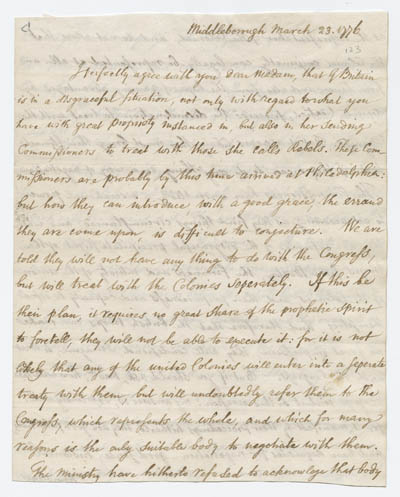 Middleborough March 23. 1776
123
I perfectly agree with you Dear Madam, that G Britain
is in a disgraceful situation, not only with regard to what you
have with great propriety instanced in, but also in her sending
Commissioners to treat with those she calls Rebels. These Com-
missioners are probably by this time arrived at Philadelphia:
but how they can introduce with a good grace, the errand
they are come upon is difficult to conjecture. We are
told they will not have any thing to do with the Congress,
but will treat with the Colonies seperately. If this be
their plan, it requires no great share of the prophetic spirit
to foretell, they will not be able to execute it: for it is not
likely that any of the united Colonies will enter into a seperate
treaty with them, but will undoubtedly refer them to the
Congress, which represents the whole, and which for many
reasons is the only suitable body to negotiate with them.
The Ministry have hitherto refused to acknowlege that body